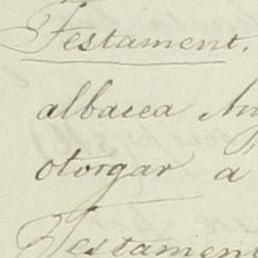 Testament.
albacea
otorgar a
Testament